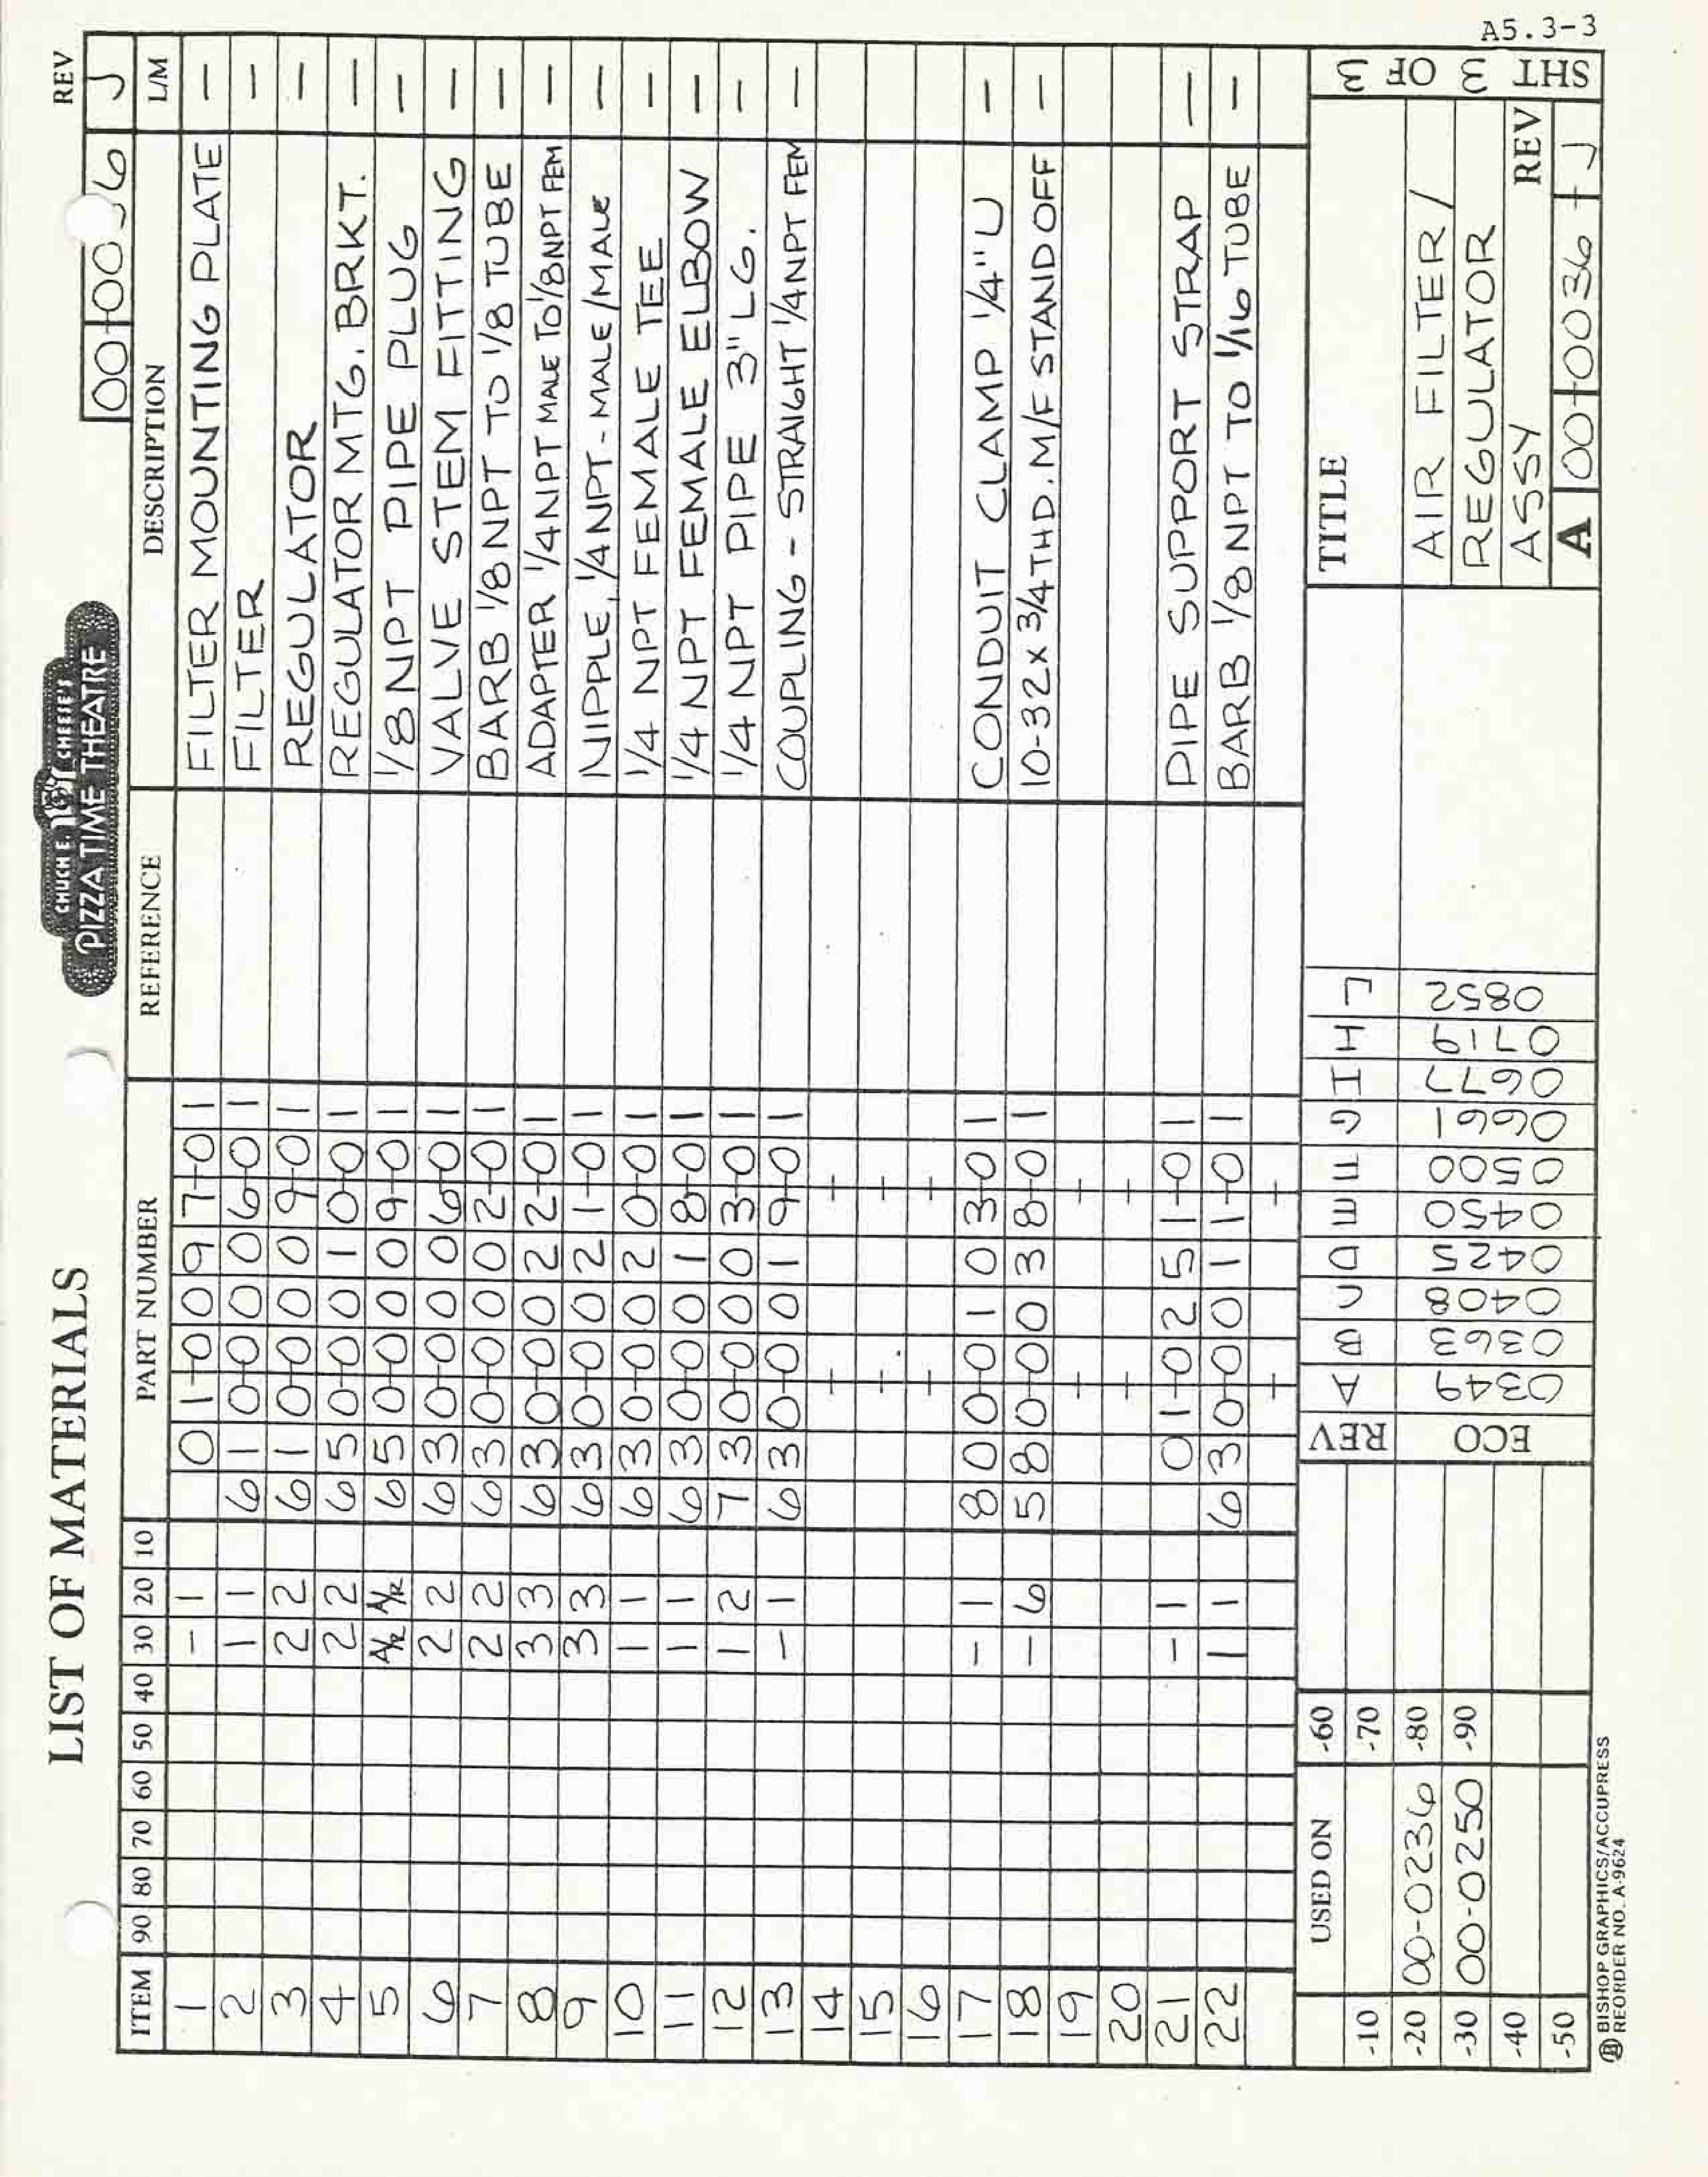 A5.3-3
LIST OF MATERIALS
CHUCK E. CHEESE'S
PIZZA TIME THEATRE
REV
00-00 36 J
ITEM 90 80 70 60 50 40 30 20 10 PART NUMBER REFERENCE DESCRIPTION L/M
1 - 1 01-0097-01 FILTER MOUNTING PLATE -
2 1 1 610-0006-01 FILTER -
3 2 2 610-0009-01 REGULATOR -
4 2 2 650-0010-01 REGULATOR MTG. BRKT. -
5 A/R A/R 650-0009-01 1/8 NPT PIPE PLUG -
6 2 2 630-0006-01 VALVE STEM FITTING -
7 2 2 630-0002-01 BARB 1/8 NPT TO 1/8 TUBE -
8 3 3 630-0022-01 ADAPTER 1/4NPT MALE TO 1/8NPT FEM -
9 3 3 630-0021-01 NIPPLE, 1/4NPT - MALE/MALE -
10 1 1 630-0020-01 1/4 NPT FEMALE TEE -
11 1 1 630-0018-01 1/4 NPT FEMALE ELBOW -
12 1 2 730-0003-01 1/4 NPT PIPE 3" LG. -
13 - 1 630-0019-01 COUPLING - STRAIGHT 1/4NPT FEM -
14
15
16
17 - 1 800-0103-01 CONDUIT CLAMP 1/4" U -
18 - 6 580-0038-01 10-32 x 3/4 THD. M/F STANDOFF -
19
20
21 - 1 01-0251-01 PIPE SUPPORT STRAP -
22 1 1 630-0011-01 BARB 1/8 NPT TO 1/16 TUBE -
USED ON
-10 -60
-20 00-0236 -70
-30 00-0250 -80
-40 -90
-50
REV A B C D E F G H I J
ECO 0349 0363 0408 0425 0450 0500 0661 0677 0719 0852
TITLE
AIR FILTER/
REGULATOR
ASSY
REV
A 00-0036 - J
SHT 3 OF 3
BISHOP GRAPHICS/ACCUPRESS
REORDER NO. A-9624